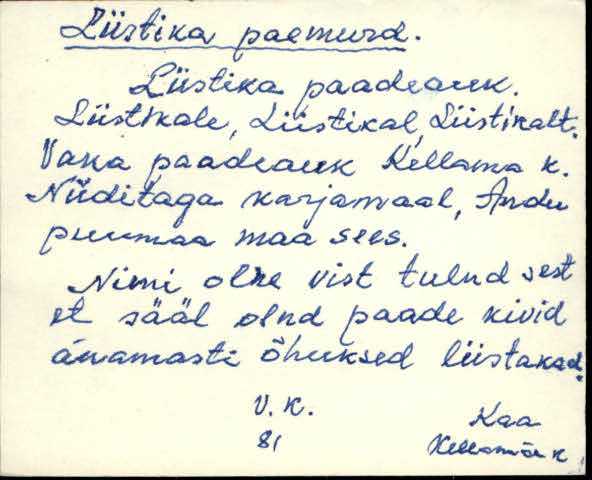 Liistika paemurd.
Liistika paadeauk.
Liistikale, Liistikal, Liistikalt.
Vana paadeauk Kellama k.
Niiditaga karjamaal, Andu
puumaa maa sees.
Nimi olle vist tulnd sest
et sääl olnd paade kivid
änamasti õhuksed liistakad.
V. K.
81
Kaa